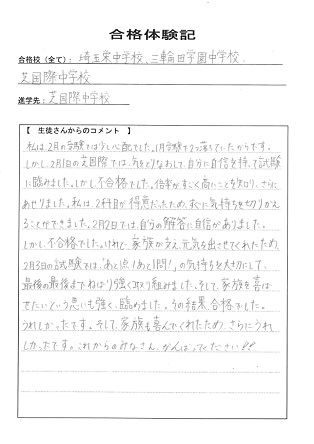 合格体験記
合格校（全て）：埼玉栄中学校、三輪田学園中学校、
芝国際中学校
進学先：芝国際中学校
【 生徒さんからのコメント 】
私は2月の受験では少し心配でした。1月受験で2つ落ちていたからです。
しかし、2月1日の芝国際では、気をとりなおして、自分に自信を持って試験
に臨みました。しかし、不合格でした。倍率がすごく高いことを知り、さらに
あせりました。私は、2科目が得意だったため、すぐに気持ちを切りかえ
ることができました。2月2日では、自らの解答に自信がありました。
しかし、不合格でした。けれど、家族が支え、元気を出させてくれたため、
2月3日の試験では、「あと1点!あと1問!」の気持ちを大切にして、
最後の最後までねばり強く取り組みました。そして、家族を喜ば
せたいという思いも強く、臨めました。その結果、合格でした。
うれしかったです。そして、家族も喜んでくれたため、さらにうれ
しかったです。これからのみなさん、がんばってください!!